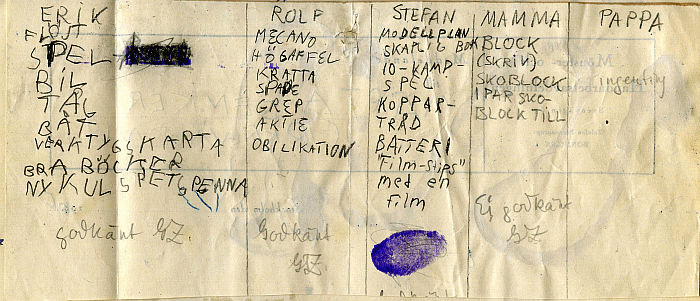 ERIK
FLÖJT
SPEL
BIL
TÅG
BÅT
VERKTYGSKARTA
BRA BÖCKER
NY KULSPETSPENNA
godkänt GZ.
ROLF
MECANO
HÖGAFFEL
KRATTA
SPADE
GREP
AKTIE
OBILIKATION
Godkänt
GZ.
STEFAN
MODELLPLAN
SKAPLIG BOK
10 KAMP
SPEL
KOPPAR-
TRÅD
BATTERI
"Film-slips"
med en
film
MAMMA
BLOCK
(SKRIV)
SKOBLOCK
1 PAR SKO-
BLOCK TILL
Ej godkänt
GZ
PAPPA
ingenting